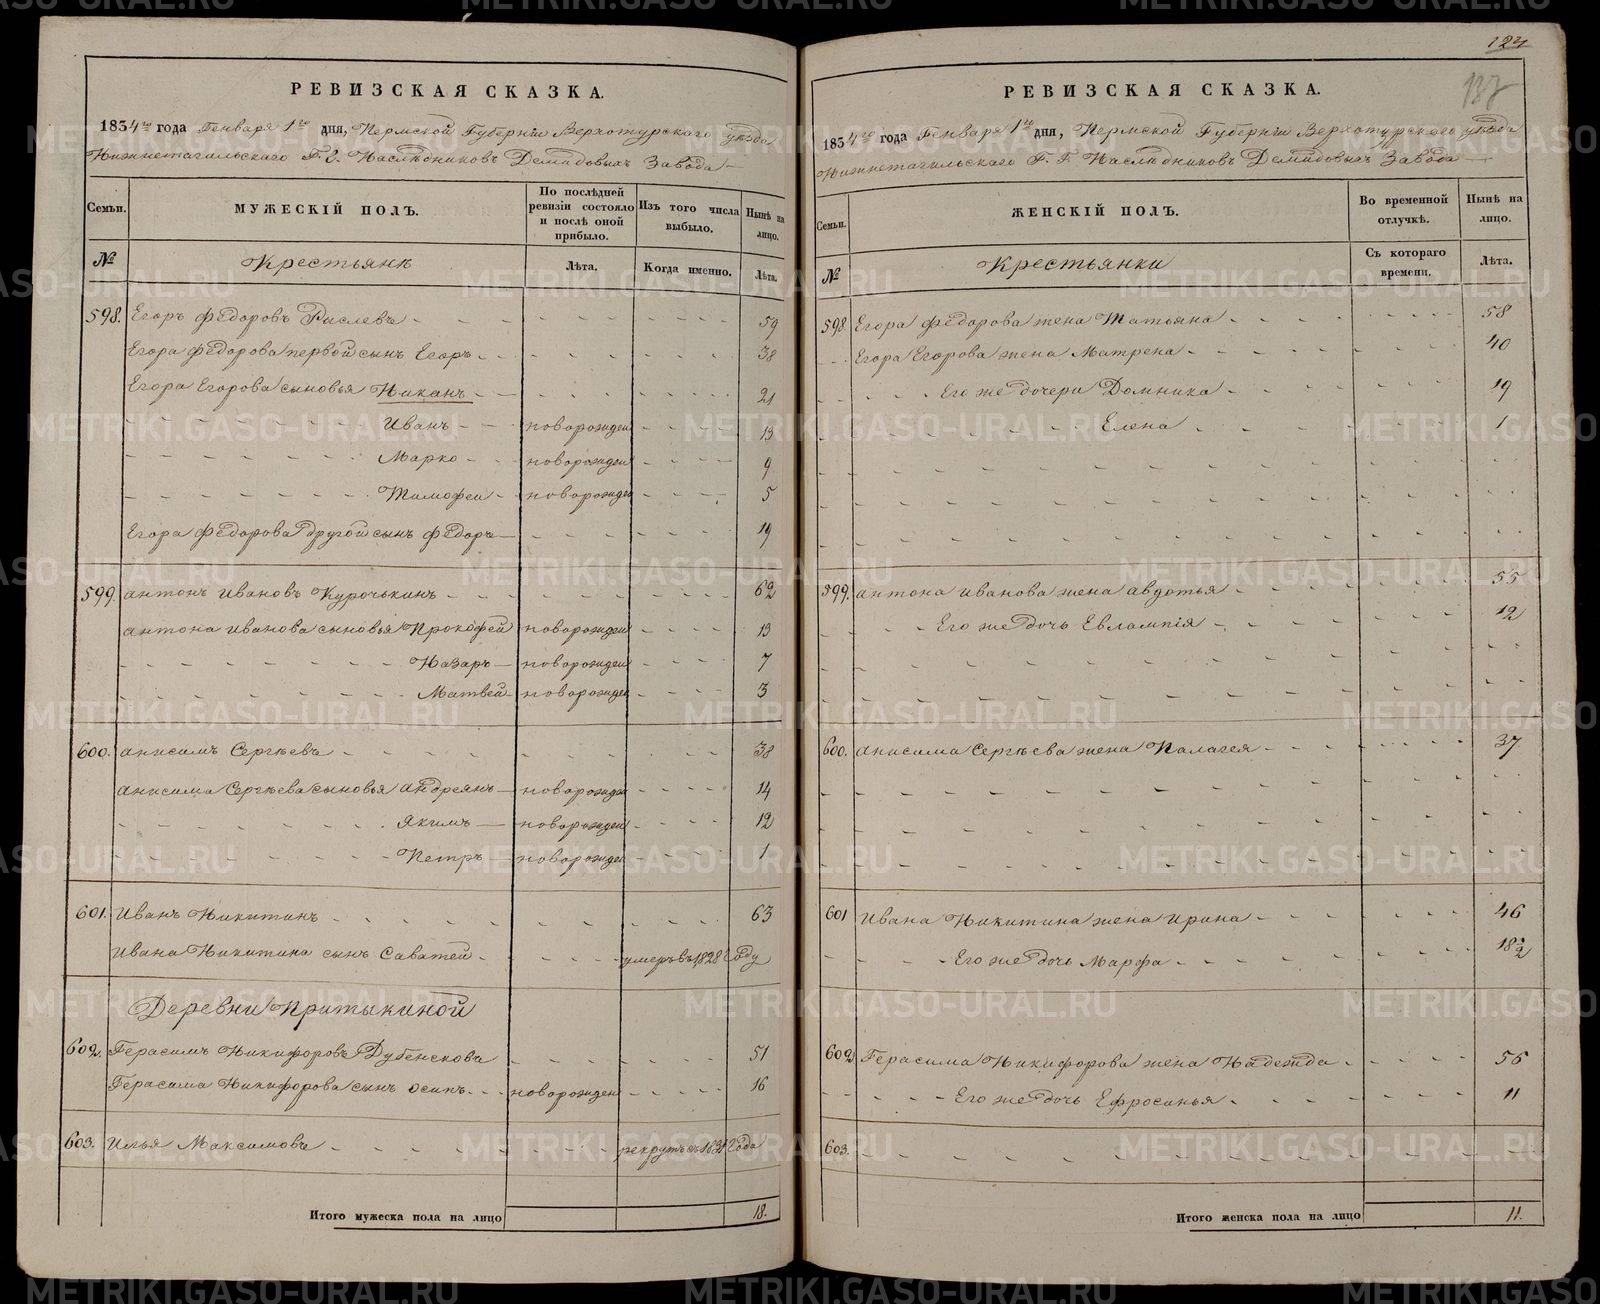 РЕВИЗСКАЯ СКАЗКА.
1834го года Генваря 1го дня, Пермской Губерніи Верхотурскаго уѣзда
Нижнетагильскаго Г. Г. Наслѣдниковъ Демидовыхъ Завода
Семьи.
МУЖЕСКІЙ ПОЛЪ.
По послѣдней ревизіи состояло и послѣ оной прибыло.
Изъ того числа выбыло.
Нынѣ на лицо.
№
Крестьянѣ
Лѣта.
Когда именно.
Лѣта.
598. Егоръ Федоровъ 59
Егора Федорова первой сынъ Егоръ 38
Егора Егорова сыновья Никанъ 21
Иванъ новорожден 13
Марко новорожден 9
Тимофеи новорожден 5
Егора Федорова другой сынъ Федоръ 19
599. Антонъ Ивановъ Курочькинъ 62
Антона Иванова сыновья Прокофей новорожден 13
Назаръ новорожден 7
Матвей новорожден 3
600. Анисимъ Сергѣевъ 38
Анисима Сергѣева сыновья Андреянъ новорожден 14
Якимъ новорожден 12
Петръ новорожден 1
601. Иванъ Никитинъ 63
Ивана Никитина сынъ Саватей умеръ въ 1828 году
Деревни Притыкиной
602. Герасимъ Никифоровъ Дубенсковъ 51
Герасима Никифорова сынъ Осипъ новорожден 16
603. Илья Максимовъ рекрутъ съ 1831 года
Итого мужеска пола на лицо 18.
124
137
РЕВИЗСКАЯ СКАЗКА.
1834го года Генваря 1го дня, Пермской Губерніи Верхотурскаго уѣзда
Нижнетагильскаго Г. Г. Наслѣдниковъ Демидовыхъ Завода
Семьи.
ЖЕНСКІЙ ПОЛЪ.
Во временной отлучкѣ.
Нынѣ на лицо.
№
Крестьянки
Съ котораго времени.
Лѣта.
598. Егора Федорова жена Татьяна 58
Егора Егорова жена Матрена 40
Его же дочери Домника 19
Елена 1
599. Антона Иванова жена Авдотья 55
Его же дочь Евлампія 12
600. Анисима Сергѣева жена Палагея 37
601 Ивана Никитина жена Ирина 46
Его же дочь Марфа 18 1/2
602 Герасима Никифорова жена Надежда 56
Его же дочь Ефросинья 11
603.
Итого женска пола на лицо 11.
METRIKI.GASO-URAL.RU